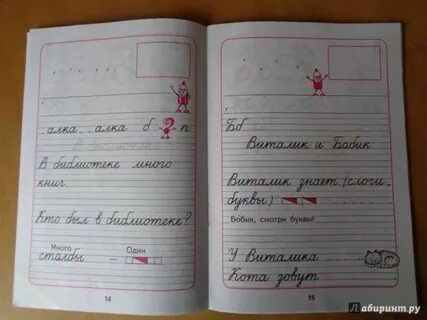 ..алка ..алка б ? п
В библиотеке много
книг.
Кто был в библиотеке?
Много
Один
столбы –
14
Бб
Виталик и Бобик
Виталик знает (слоги,
буквы)
Бобик, смотри буквы!
У Виталика
Кота зовут
15
Лабиринт.ру